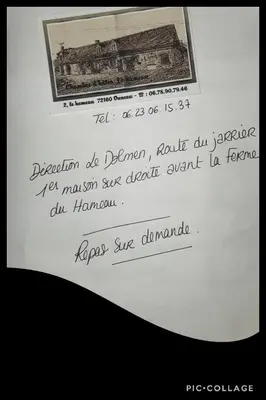 Chambre d'hôtes Le Hameau
2, le hameau 72160 Duneau - ☎ : 06.78.90.79.46
Tel: 06 23 06 15 37
Direction de Dolmen, Route du jarrier
1er maison sur droite avant la ferme
du Hameau.
Repas sur demande.
PIC•COLLAGE